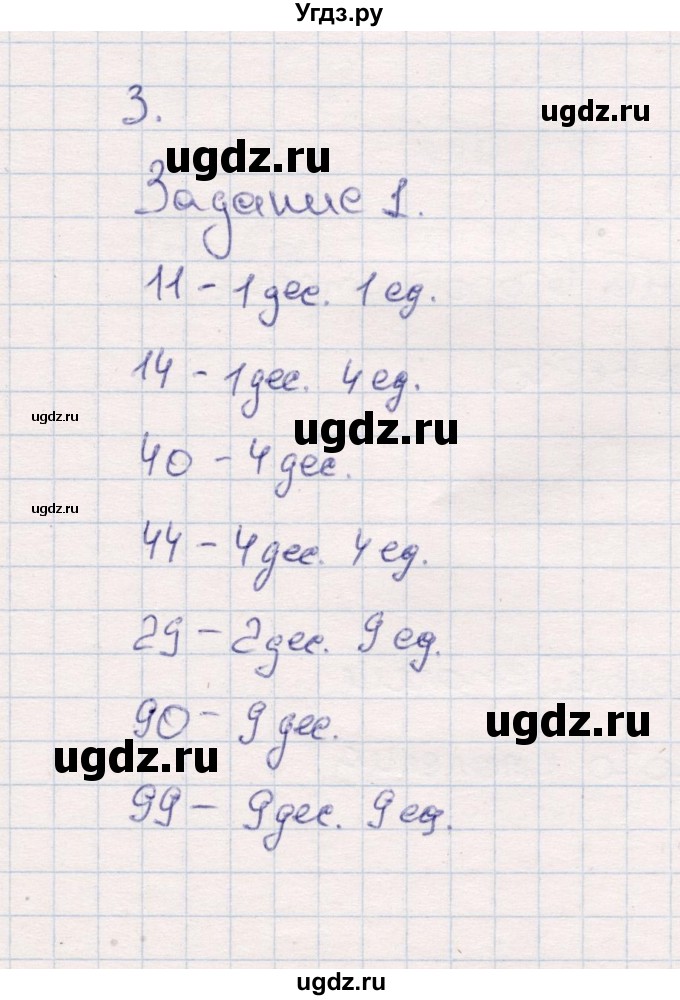 Угдз.ру
3.
ugdz.ru
ugdz.ru
Задание 1.
11 - 1 дес. 1 ед.
14 - 1 дес. 4 ед.
ugdz.ru
ugdz.ru
40 - 4 дес.
ugdz.ru
44 - 4 дес. 4 ед.
29 - 2 дес. 9 ед.
90 - 9 дес.
ugdz.ru
ugdz.ru
99 - 9 дес. 9 ед.
ugdz.ru